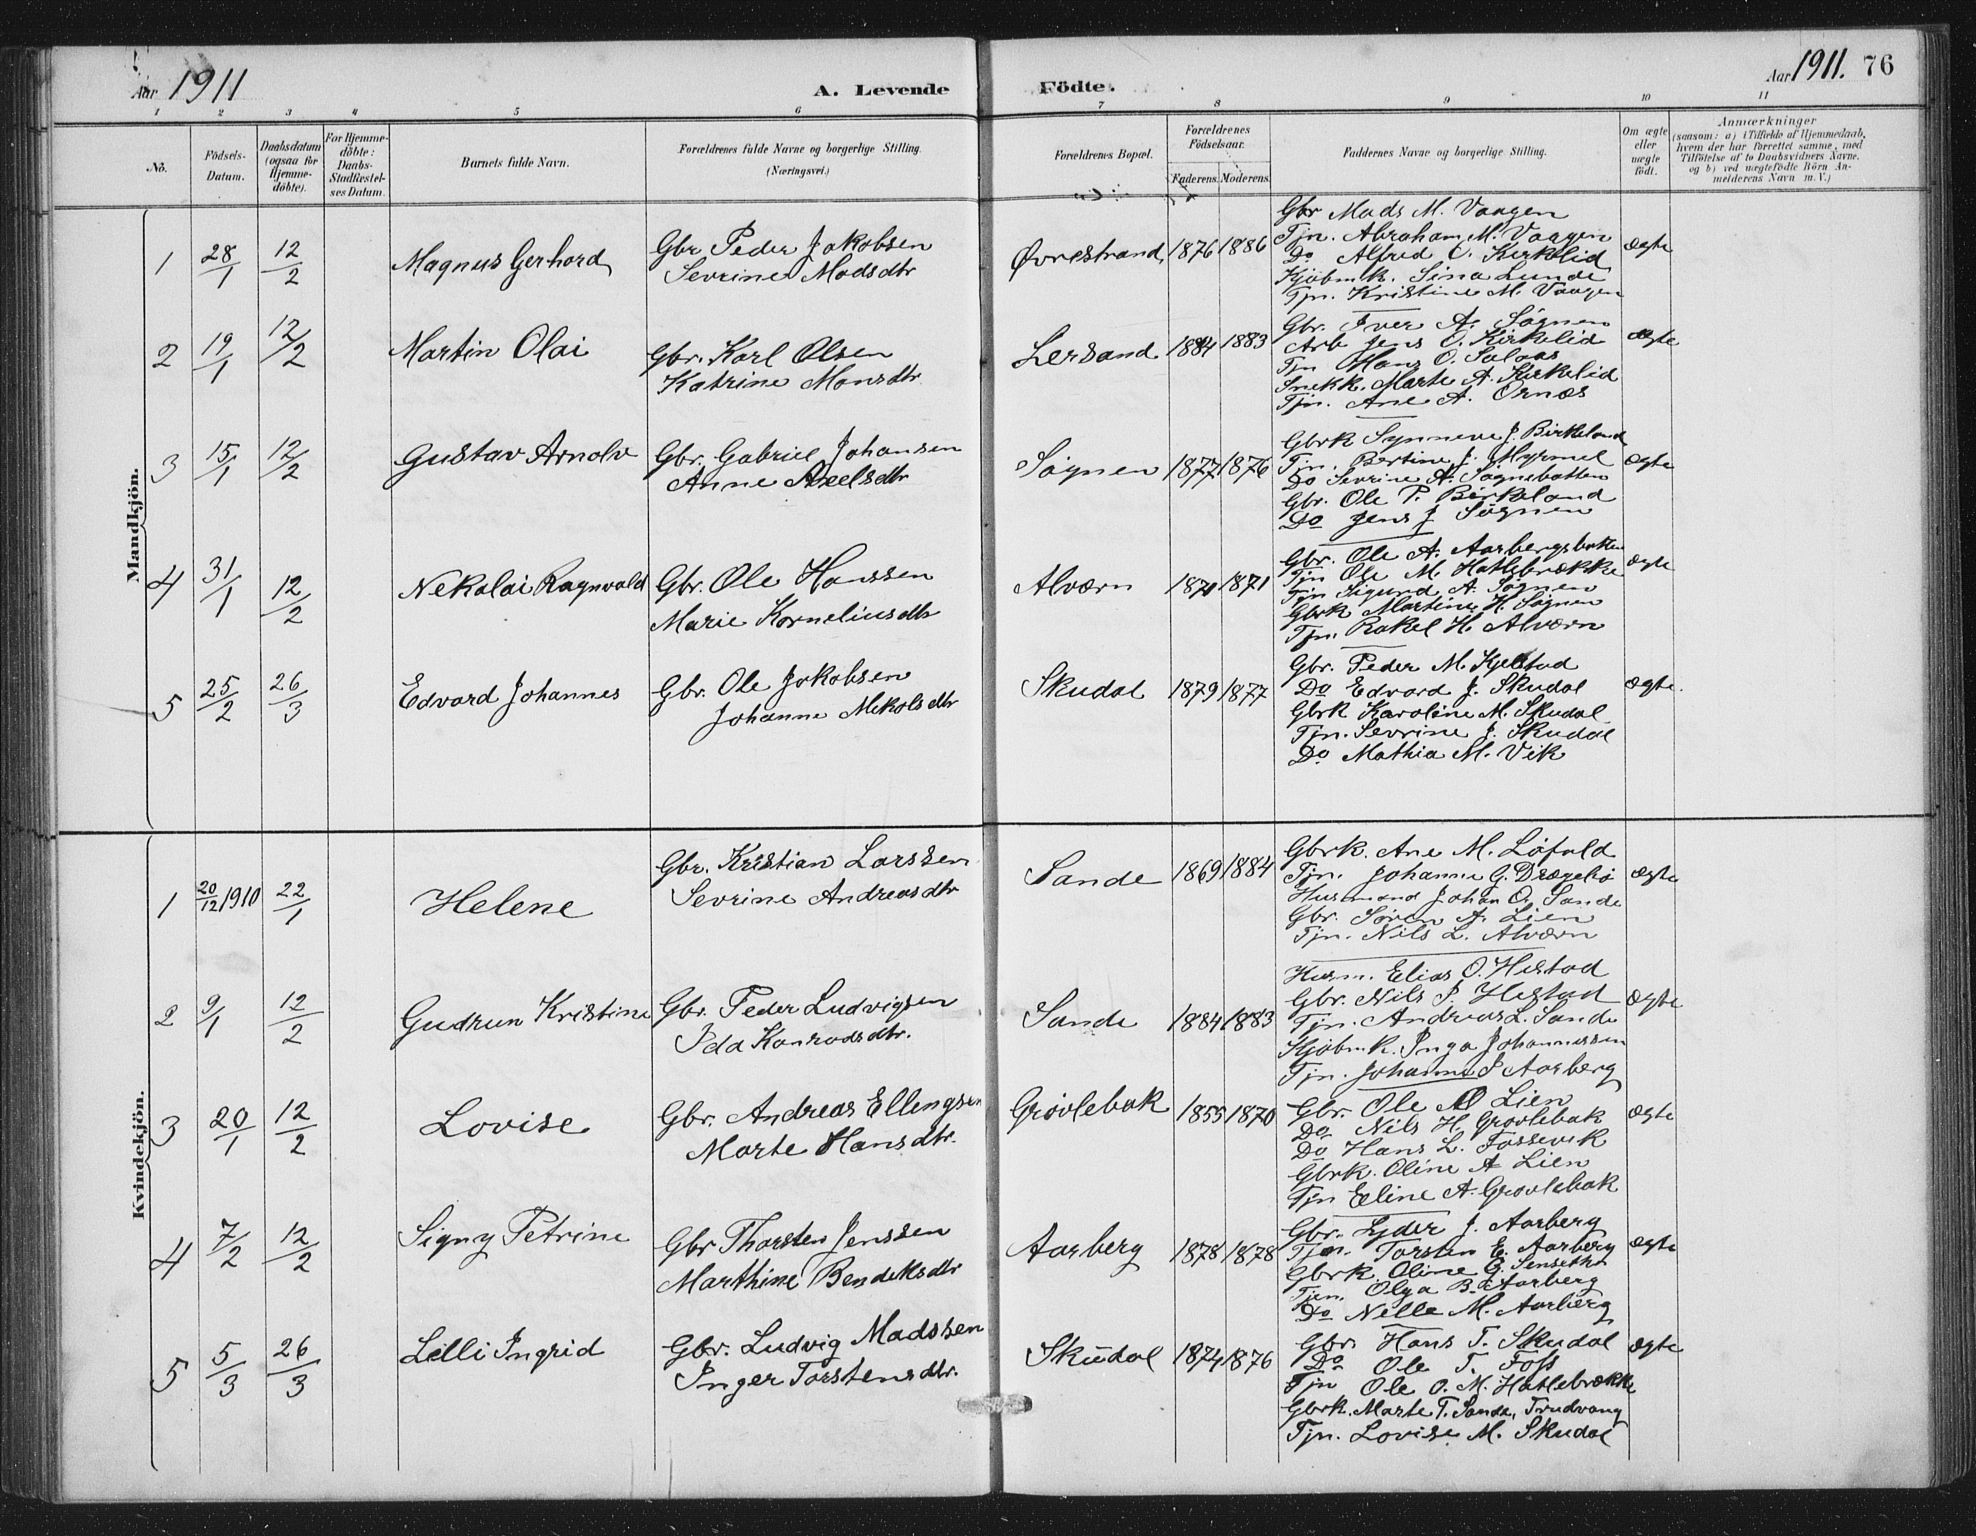 Aar 1911 A. Levende Födte. Aar 1911. 76
1 2 3 4 5 6 7 8 9 10 11
No.
Födsels-Datum.
Daabsdatum (ogsaa for Hjemme-döbte).
For Hjemme-döbte: Daabs-Stadfæstel-ses Datum.
Barnets fulde Navn.
Forældrenes fulde Navne og borgerlige Stilling.
(Næringsvei.)
Forældrenes Bopæl.
Forældrenes Födselsaar.
Faderens. Moderens.
Faddernes Navne og borgerlige Stilling.
Om ægte eller uægte födt.
Anmærkninger
(saasom: a) i Tilfælde af Hjemmedaab,
hvem der har forrettet samme, med
Tilföielse af to Daabsvidners Navne,
og b) ved uægtefödte Börn An-
melderens Navn m. V.)
Mandkjön.
1 28/1 12/2 Magnus Gerhard
Gbr Peder Jakobsen
Sevrine Madsdtr
Øvrestrand 1876 1886
Gbr Mads M. Vaagen
Tjn. Abraham M. Vaagen
Do Alfred O. Kirkelid
Kjøbmk. Sina Lunde
Tjn. Kristine M. Vaagen
ægte
2 19/1 12/2 Martin Olai
Gbr. Karl Olsen
Katrine Monsdtr.
Lersand 1884 1883
Gbr. Iver A. Søgnen
Arb Jens O. Kirkelid
Tjn Hans O. Solaas
Snekk. Marte A. Kirkelid
Tjn. Ane A. Ornæs
ægte
3 15/1 12/2 Gustav Arnolv
Gbr. Gabriel Johansen
Anne Axelsdtr
Søgnen 1877 1876
Gbrk Synneve J. Birkeland
Tjn. Bertine J. Myrmel
Do Sevrine A. Søgnebotten
Gbr. Ole P. Birkeland
Do Jens J Søgnen
ægte
4 31/1 12/2 Nekolai Ragnvald
Gbr. Ole Hanssen
Marie Korneliusdtr
Alværn 1870 1871
Gbr. Ole A. Aarbergsbotten
Tjn Ole M. Hatlebrække
Tjn Sigund A. Søgnen
Gbrk Martine H. Søgnen
Tjn. Rakel H. Alværn
ægte
5 25/2 26/3 Edvard Johannes
Gbr. Ole Jakobsen
Johanne Mekolsdtr
Skudal 1879 1877
Gbr. Peder M. Kjelstad
Do Edvard J. Skudal
Gbrk Karoline M. Skudal
Tjn. Sevrine J. Skudal
Do Mathia M. Vik
ægte.
Kvindekjön.
1 20/12 1910 22/1 Helene
Gbr. Kristian Larssen
Sevrine Andreasdtr
Sande 1869 1884
Gbrk. Ane M. Løfald
Tjn. Johanne G. Drægebø
Husmand Johan O. Sande
Gbr. Søren A. Lien
Tjn. Nils L. Alværn
ægte
2 9/1 12/2 Gudrun Kristine
Gbr. Peder Ludvigsen
Ida Konradsdtr.
Sande 1884 1883
Husm. Elias O. Hestad
Gbr. Nils P. Hestad
Tjn. Andreas L. Sande
Kjøbmk. Inga Johannessen
Tjn. Johanne P Aarberg
ægte
3 20/1 12/2 Lovise
Gbr. Andreas Ellingsen
Marte Hansdtr.
Grøvlebak 1855 1870
Gbr. Ole A Lien
Do Nils H. Grøvlebak
Do Hans L. Fossevik
Gbrk. Oline A Lien
Tjn Eline A. Grøvlebak
ægte
4 7/2 12/2 Signy Petrine
Gbr Thorsten Jenssen
Marthine Bendiksdtr
Aarberg 1878 1878
Gbr. Lyder J. Aarberg
Tjn. Torsten E. Aarberg
Gbrk Oline G.
Tjen. Olga B. Aarberg
Do Nelle M. Aarberg
ægte
5 5/3 26/3 Lilli Ingrid
Gbr. Ludvig Madssen
Inger Torstensdtr.
Skudal 1874 1876
Gbr. Hans T. Skudal
Do Ole T. Foss
Tjn Ole O. M. Hatlebrække
Gbrk. Marte T. Sande, Trudvang
Tjn. Lovise M. Skudal
ægte